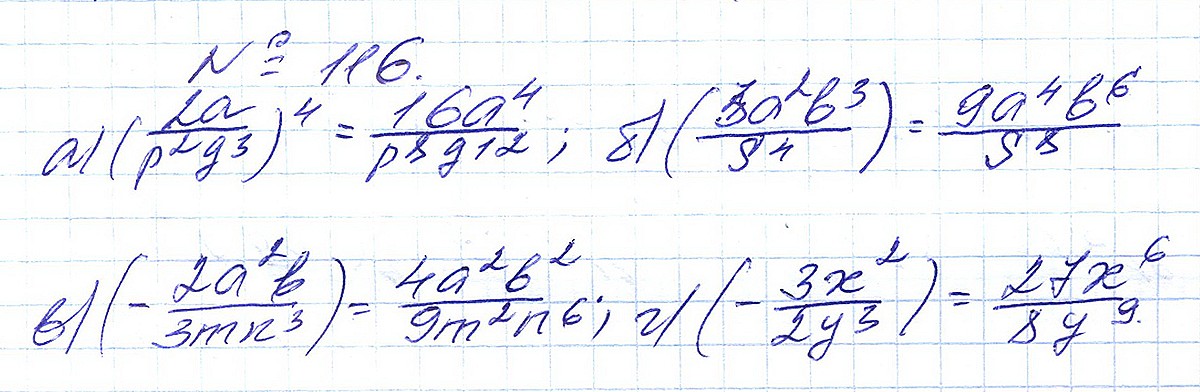 № 116.
а) (2a/p²q³)⁴ = 16a⁴/p⁸q¹²; б) (3a²b³/S⁴) = 9a⁴b⁶/S⁸
в) (-2a²b/3mn³) = 4a²b²/9m²n⁶; г) (-3x²/2y³) = 27x⁶/8y⁹.